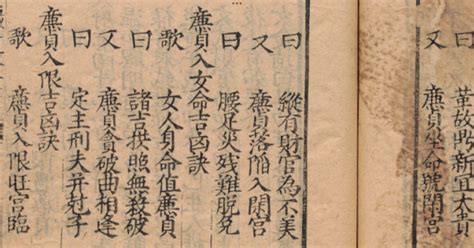 曰 革故鼎新宜大貴
又 廉貞坐命號閑宮
曰 縱有財官為不美
又 廉貞落陷入閑宮
曰 腰足災殘難脫免
廉貞入女命吉凶訣
歌 女人身命值廉貞
曰 諸吉拱照無殺破
又 廉貞貪破曲相逢
曰 定主刑夫并尅子
廉貞入限吉凶訣
歌 廉貞入限旺宮臨